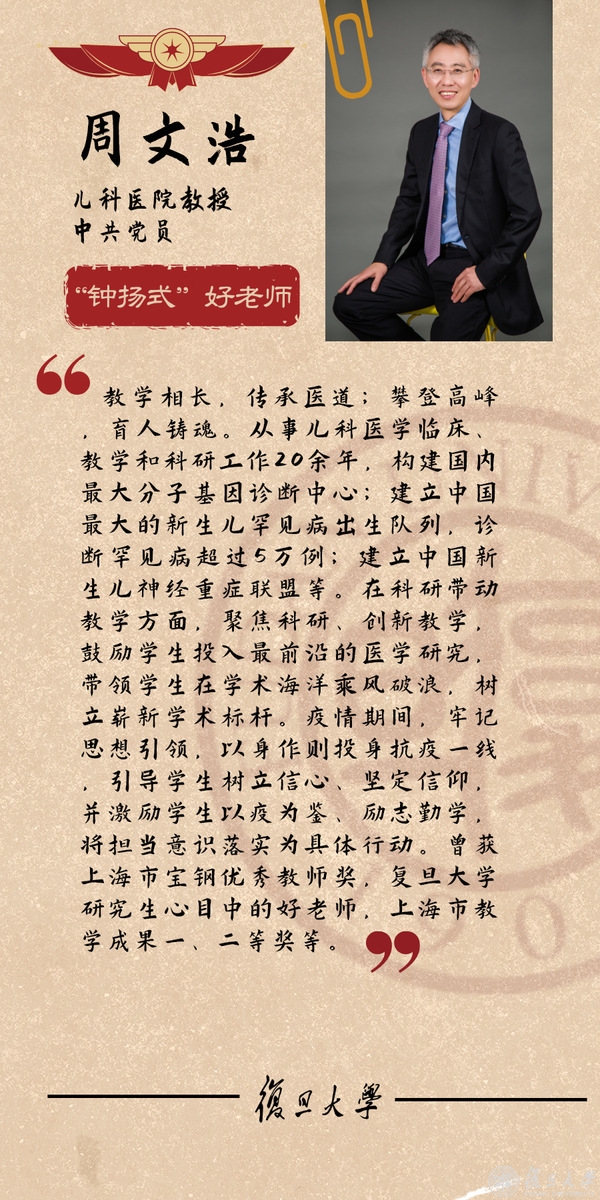 周文浩
儿科医院教授
中共党员
“钟扬式”好老师
“教学相长，传承医道；攀登高峰
，育人铸魂。从事儿科医学临床、
教学和科研工作20余年，构建国内
最大分子基因诊断中心；建立中国
最大的新生儿罕见病出生队列，诊
断罕见病超过5万例；建立中国新
生儿神经重症联盟等。在科研带动
教学方面，聚焦科研、创新教学，
鼓励学生投入最前沿的医学研究，
带领学生在学术海洋乘风破浪，树
立崭新学术标杆。疫情期间，牢记
思想引领，以身作则投身抗疫一线
，引导学生树立信心、坚定信仰，
并激励学生以疫为鉴、励志勤学，
将担当意识落实为具体行动。曾获
上海市宝钢优秀教师奖，复旦大学
研究生心目中的好老师，上海市教
学成果一、二等奖等。”
復旦大學